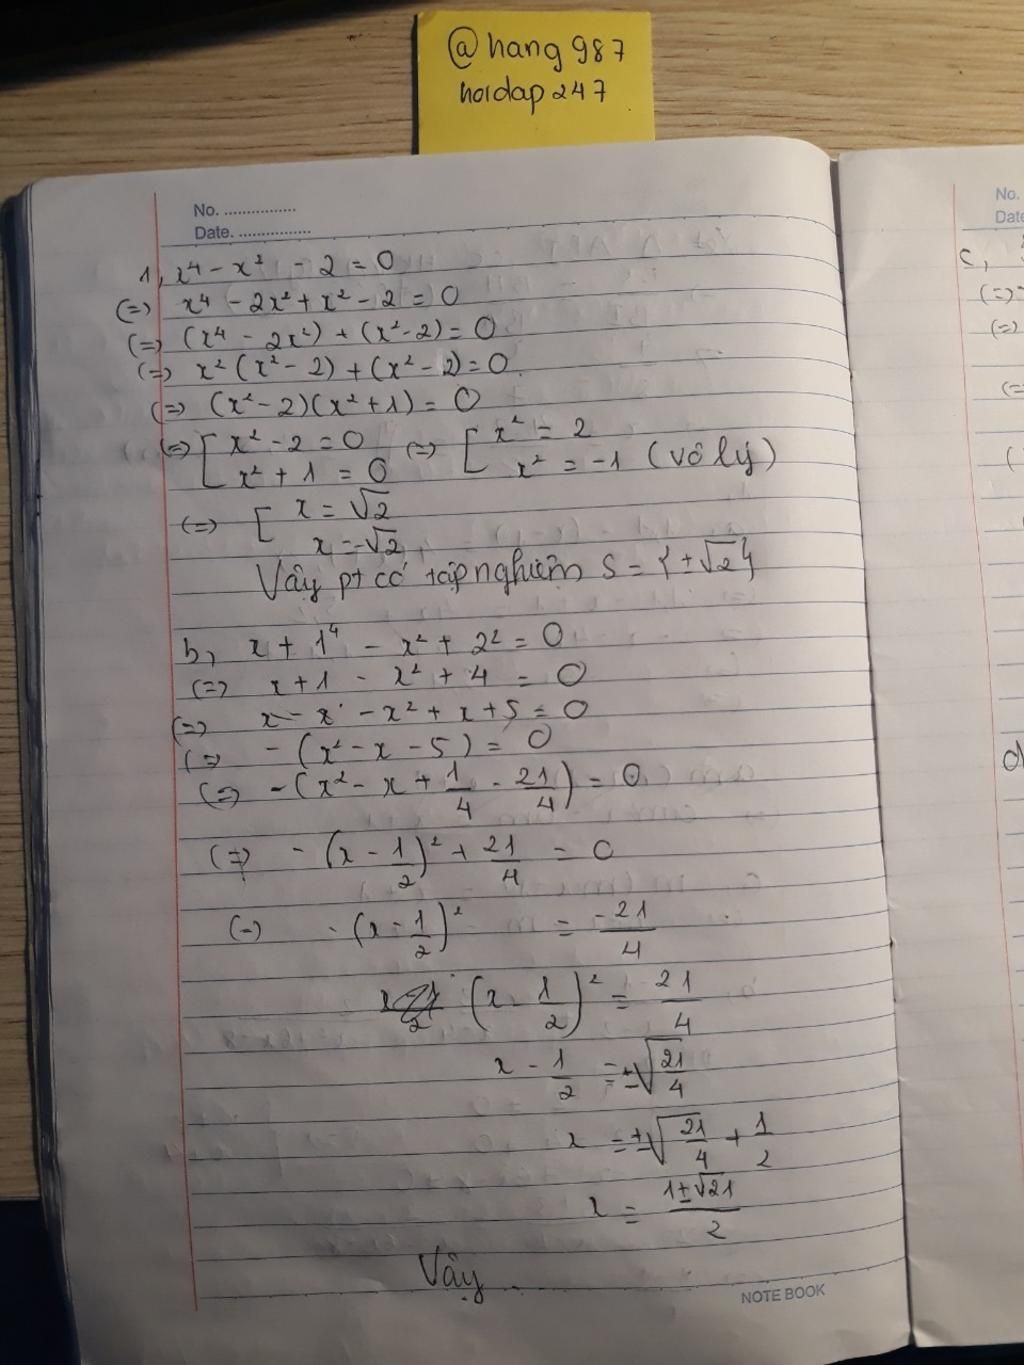 @hang987
hoidap247
No. ................
Date. ................
1, x⁴ - x² - 2 = 0
(=) x⁴ - 2x² + x² - 2 = 0
(=) (x⁴ - 2x²) + (x² - 2) = 0
(=) x² (x² - 2) + (x² - 2) = 0
(=) (x² - 2)(x² + 1) = 0
(=) [ x² - 2 = 0 (=) [ x² = 2
x² + 1 = 0 x² = -1 (vô lý)
(=) [ x = √2
x = -√2
Vậy pt có tập nghiệm S = {±√2}
b, x + 1⁴ - x² + 2² = 0
(=) x + 1 - x² + 4 = 0
(=) - x² + x + 5 = 0
(=) - (x² - x - 5) = 0
(=) - (x² - x + 1/4 - 21/4) = 0
(=) - (x - 1/2)² + 21/4 = 0
(=) - (x - 1/2)² = -21/4
(x - 1/2)² = 21/4
x - 1/2 = ±√21/4
x = ±√21/4 + 1/2
x = 1±√21/2
Vậy
NOTE BOOK
No.
Date
c,
(=)
(=)
(=
(
d